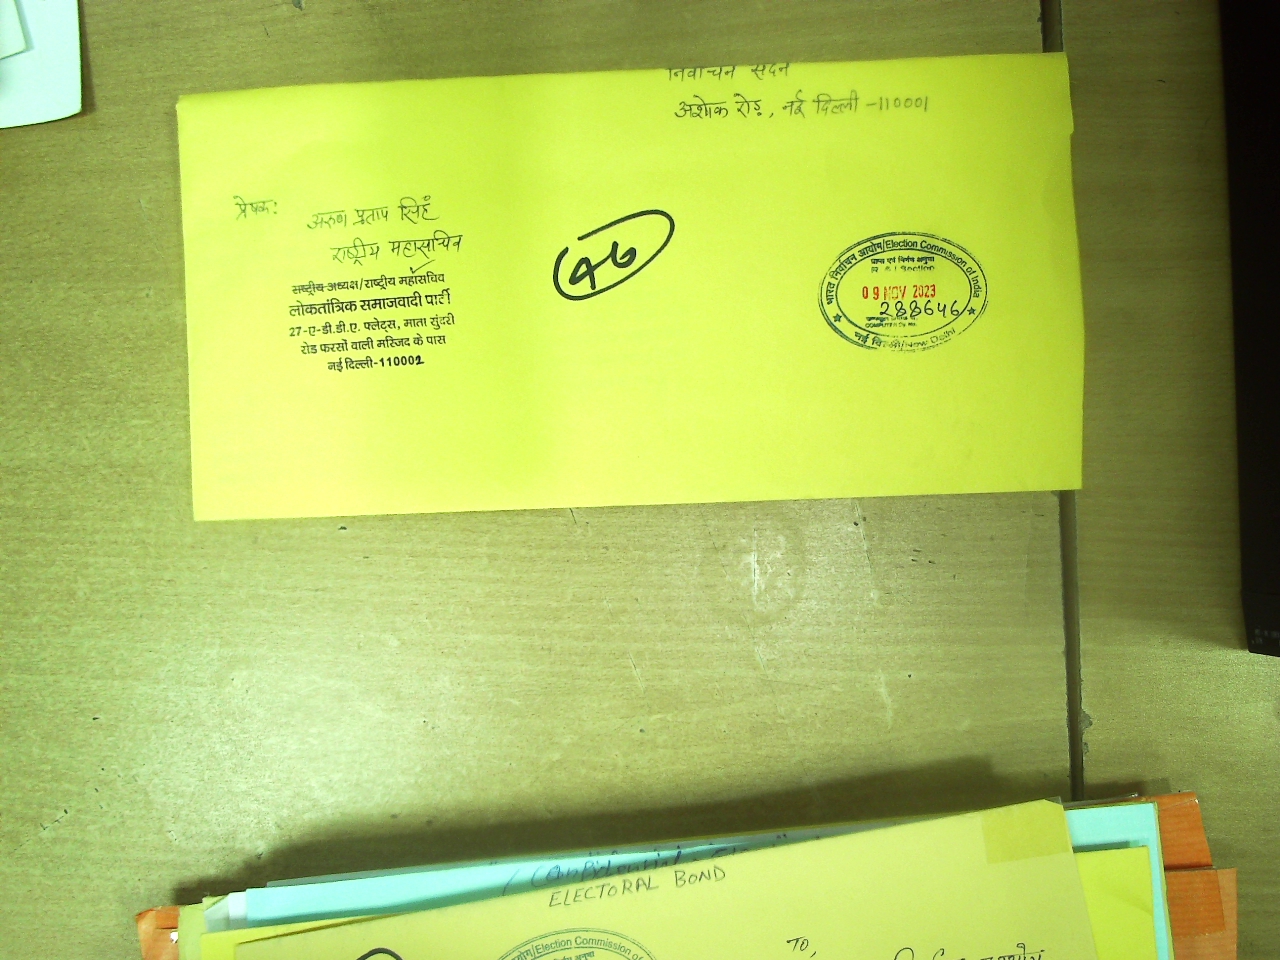 निर्वाचन सदन
अशोक रोड़, नई दिल्ली -110001
प्रेषक:
अरुण प्रताप सिंहं
राष्ट्रीय महासचिव
राष्ट्रीय अध्यक्ष/राष्ट्रीय महासचिव
लोकतांत्रिक समाजवादी पार्टी
27-ए-डी.डी.ए. फ्लेट्स, माता सुंदरी
रोड फरसों वाली मस्जिद के पास
नई दिल्ली-110002
46
भारत निर्वाचन आयोग/Election Commission of India
प्राप्त एवं निर्गम अनुभाग
R & I Section
09 NOV 2023
288646
नई दिल्ली/New Delhi
Confidential
ELECTORAL BOND
आयोग/Election Commission of
TO,